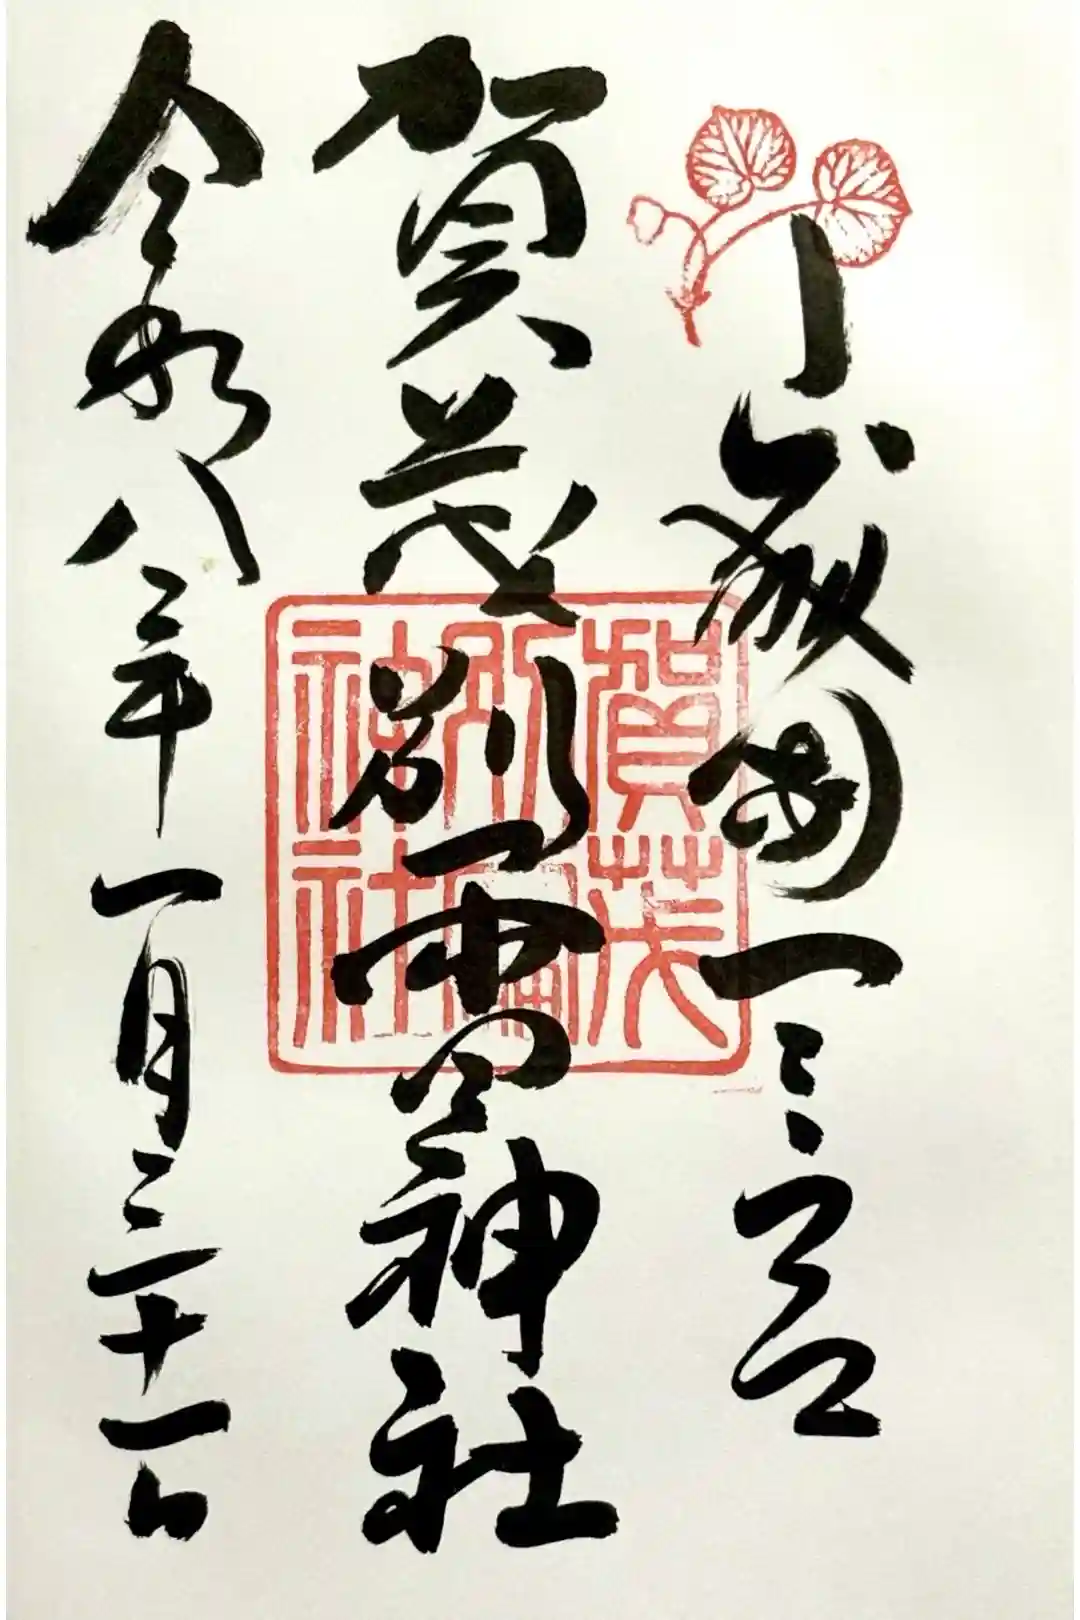 山城國一之宮
賀茂別雷神社
令和八年一月三十一日
賀茂